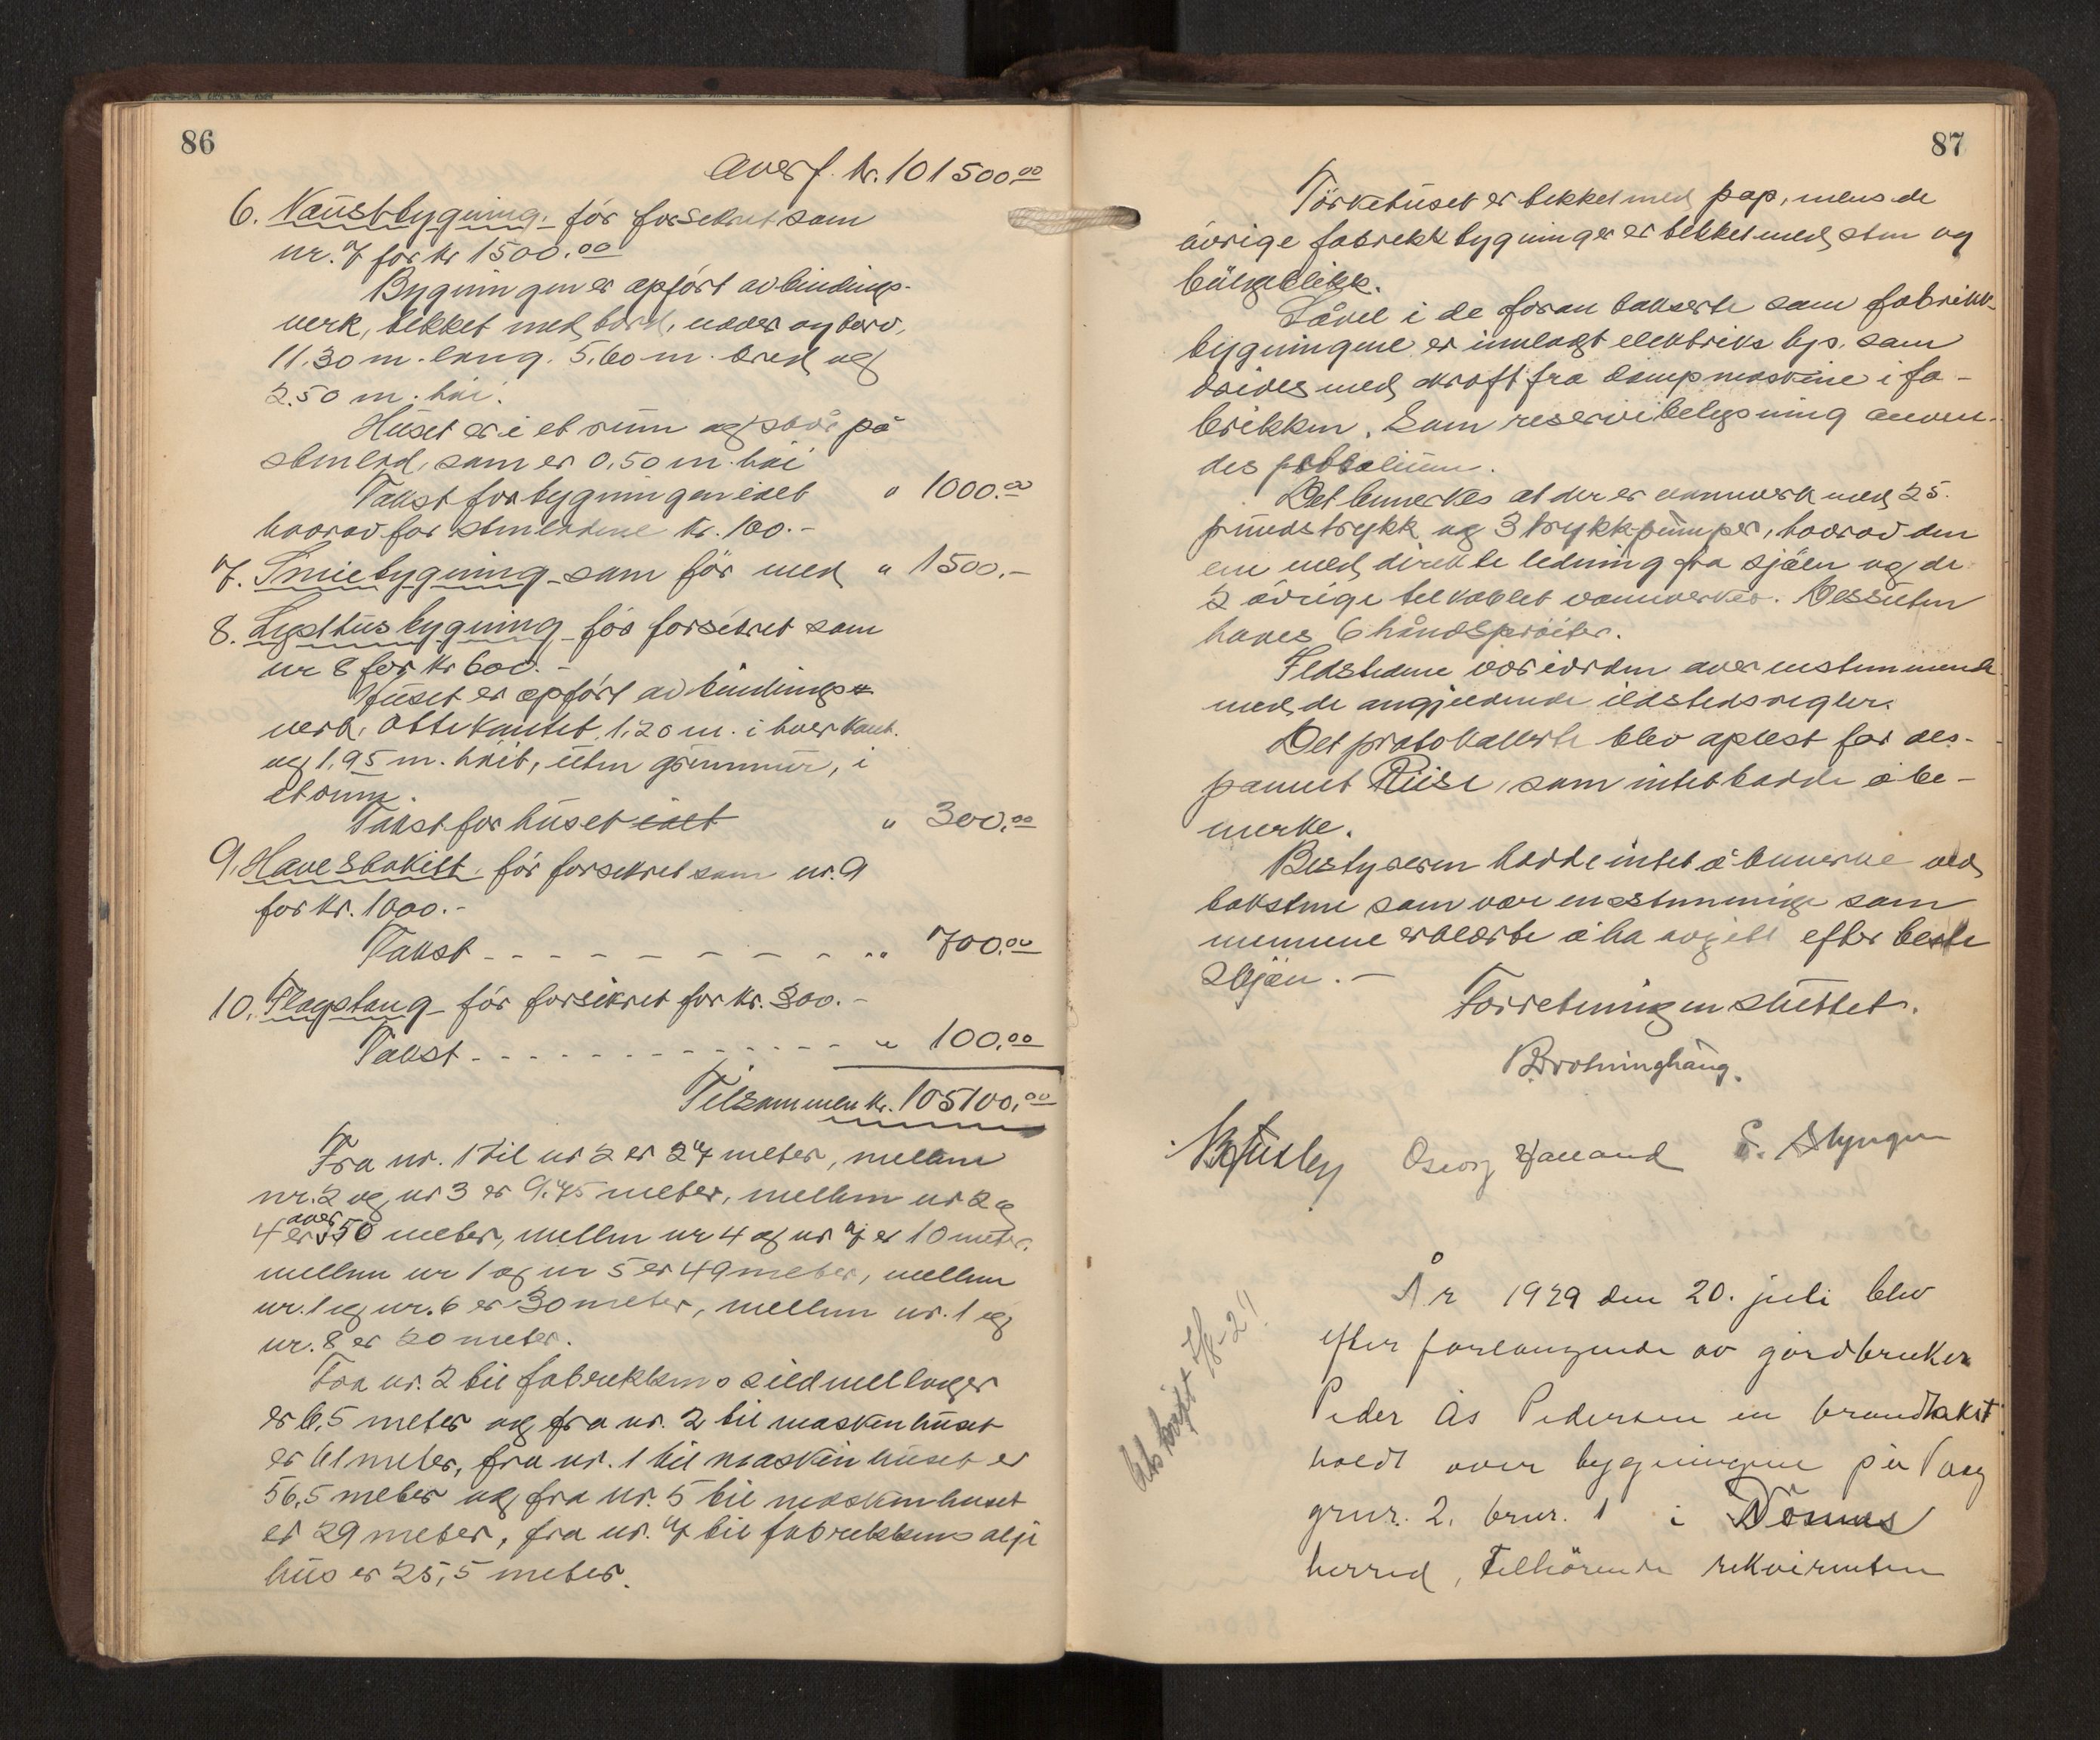 86
Overf. kr. 101500.00
6. Naustbygning, før forsikret som
nr. 7 for kr 1500.00
Bygningen er opført av bindings-
verk, tekket med bord, never og torv,
11.30 m. lang, 5,60 m. bred og
2.50 m. høi.
Huset er i et rum og står på
stenlød, som er 0,50 m. høi
Takst for bygningen ialt " 1000.00
hvorav for stenlødene kr. 100.-
7. Smiebygning som før med " 1500.-
8. Lysthusbygning før forsikret som
nr 8 for kr 600.-
Huset er opført av bindings
verk, ottekantet, 1.20 m. i hver kant.
og 1,95 m. høit, uten grunnmur, i
et rum.
Takst for huset ialt " 300.00
9. Havestakitt, før forsikret som nr. 9
for kr. 1000.-
Takst " 700.00
10. Flagstang før forsikret for kr. 300.-
Takst " 100.00
Tilsammen kr. 105100.00
Fra nr. 1 til nr 2 er 27 meter, mellem
nr. 2 og nr 3 er 9.75 meter, mellem nr 2 og
4 er over 50 meter, mellem nr 4 og nr 7 er 10 meter.
mellem nr 1 og nr 5 er 49 meter, mellem
nr. 1 og nr. 6 er 30 meter, mellem nr. 1 og
nr. 8 er 20 meter.
Fra nr. 2 til fabrikkens sildmellager
er 6,5 meter og fra nr. 2 til maskinhuset
er 61 meter, fra nr. 1 til maskinhuset er
56,5 meter og fra nr. 5 til maskinhuset
er 29 meter, fra nr. 7 til fabrikkens olje
hus er 25,5 meter.
87
Tørkehuset er tekket med pap, mens de
øvrige fabrikkbygninger er tekket med sten og
bølgeblikk.
Såvel i de foran takserte som fabrikk-
bygningene er innlagt elektrisk lys, som
drives med kraft fra dampmaskine i fa-
brikken. Som reservebelysning anven-
des petroleum.
Det bemerkes at der er vannverk med 25
pundstrykk og 3 trykkpumper, hvorav den
ene med direkte ledning fra sjøen og de
2 øvrige tilkoblet vannverket. Dessuten
haves 6 håndsprøiter.
Ildstedene var iorden overensstemmende
med de angjeldende ildstedsregler.
Det protokollerte blev oplest for des-
pannet Riise, som intet hadde å be-
merke.
Bestyreren hadde intet å bemerke ved
takstene som var enstemmige som
mennene erklærte å ha avgitt efter beste
skjøn.-
Forretningen sluttet.
B. Bronninghaug.
Georg Halland
Avskrift 7/8-29
År 1929 den 20. juli blev
efter forlangende av gårdbruker
Peder Ås Pedersen en brandtakst
holdt over bygningene på Vaag
grnr. 2. brnr. 1 i Dønnes
herred, tilhørende rekvirenten